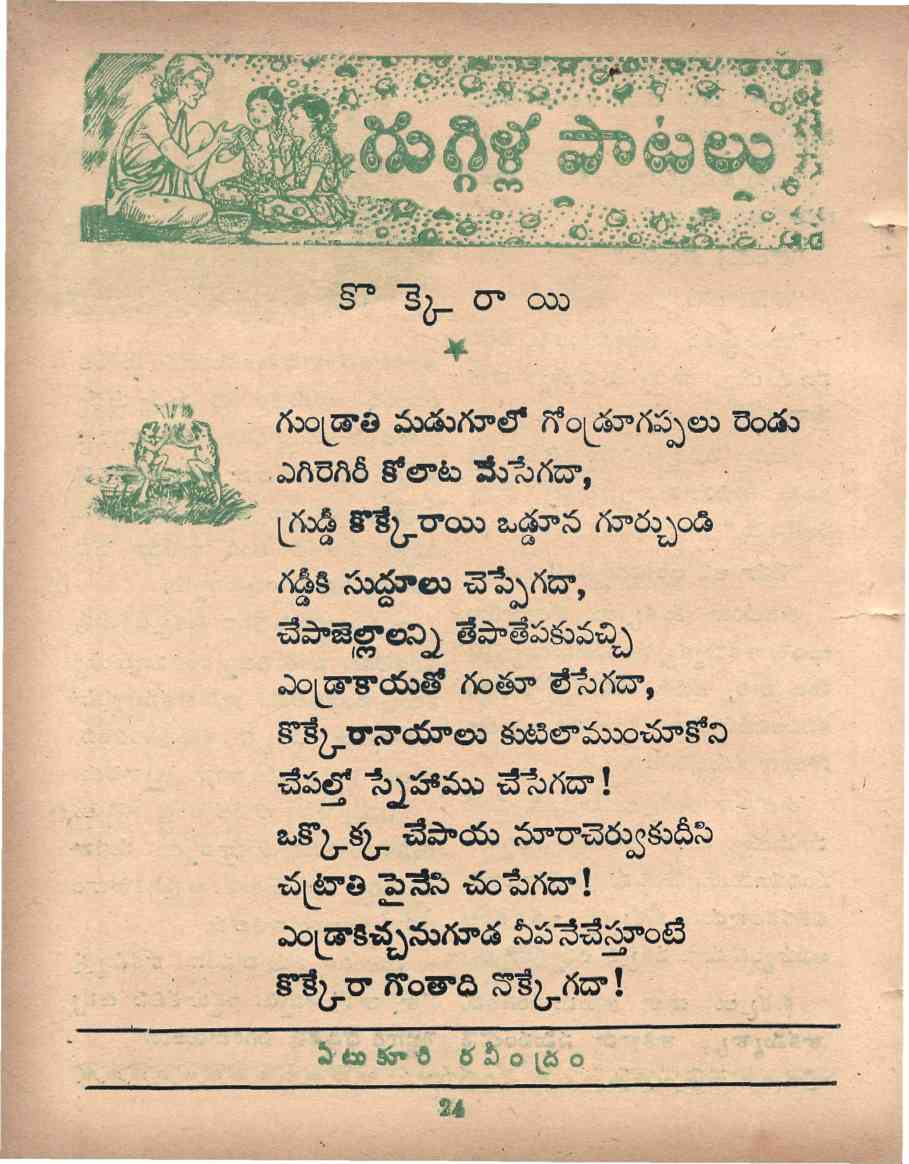 గుగ్గిళ్ల పాటలు
కొక్కెరాయి
గుండ్రాతి మడుగూలో గోండ్రూగప్పలు రెండు
ఎగిరెగిరీ కోలాట మేసేగదా,
గ్రుడ్డీ కొక్కేరాయి ఒడ్డూన గూర్చుండి
గడ్డీకి సుద్దూలు చెప్పేగదా,
చేపాజెల్లాలన్ని తేపాతేపకువచ్చి
ఎండ్రాకాయతో గంతూ లేసేగదా,
కొక్కేరానాయాలు కుటిలాముంచూకోని
చేపల్తో స్నేహాము చేసేగదా!
ఒక్కొక్క చేపాయ నూరాచెర్వుకుదీసి
చట్రాతి పైనేసి చంపేగదా!
ఎండ్రాకిచ్చనుగూడ నీపనేచేస్తూంటే
కొక్కేరా గొంతాది నొక్కేగదా!
ఏటుకూరి రవీంద్రం
24